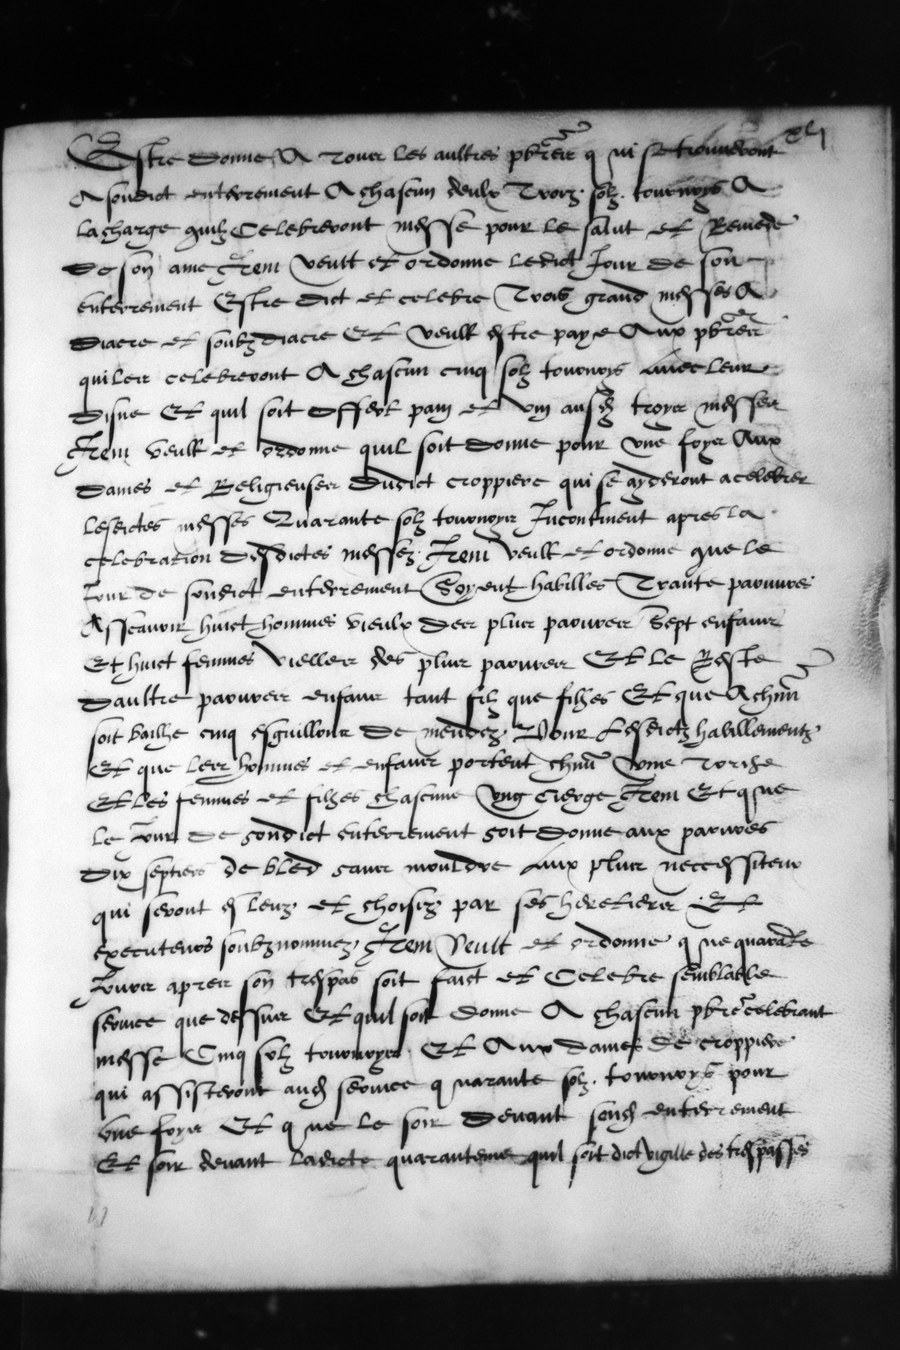 xlj
Estre donne A tous les aultres pbres q ui se trouveront
A sondict enterrement A chascun deulx Troiz solz tournoys A
la charge quilz Celebreront messe pour le salut et Remede
de son ame Item veult et ordonne ledict Jour de son
enterrement Estre dict et celebre Trois grand messes A
diacre et soubzdiacre Et veult estre paye Aux pbres
qui les celebreront A chascun cinq solz tournoys Avec leur
disne Et quil soit offert pain et vin ausd troys messes
Item veult et ordonne quil soit donne pour une foys Aux
dames et Religieuses dudict croppiere qui se ayderont a celebrer
lesdictes messes Quarante solz tournoys Incontinent apres la
celebration desdictes messes Item veult et ordonne que le
Jour de sondict enterrement Soyent habilles Trante pauvres
Asscavoir huict hommes vieulx des plus pauvres Sept enfans
Et huict femmes vielles des plus pauvres Et le Reste
daultre pauvres enfans tant filz que filhes Et que A chun
soit bailhe cinq esguillons de Pour lesdictz habillementz
Et que les hommes et enfans portent chun Une torche
Et les femmes et filhes chascune Ung cierge Item Et que
le Jour de sondict enterrement soit donne aux pauvres
Dix septiers de bled sans mouldre Aux plus neccessiteux
qui seront esleuz et choisiz par ses heretiers Et
executeurs soubznommez Item Veult et ordonne q ue quarante
Jours apres son trespas soit faict et Celebre semblable
service que dessus Et quil soit donne A chascun pbre celebrant
messe Cinq solz tournoys Et Aux dames de croppiere
qui assisteront aud service q uarante solz tournoys pour
une foys Et q ue le soir devant sond enterrement
Et soir devant ladicte quarantene quil soit dict vigille des trespasses